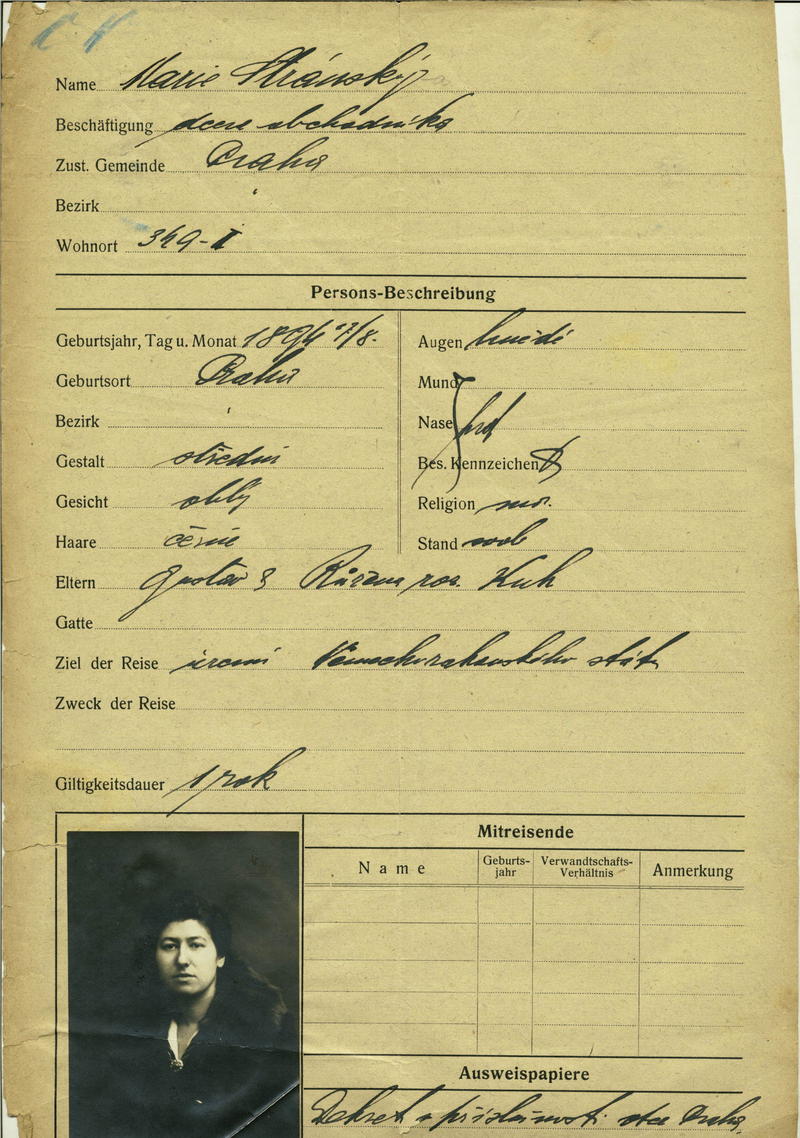 Name Marie Stránský
Beschäftigung dcera obchodníka
Zust. Gemeinde Praha
Bezirk
Wohnort 349-I
Persons-Beschreibung
Geburtsjahr, Tag u. Monat 1894 17/8.
Geburtsort Praha
Bezirk
Gestalt střední
Gesicht oblý
Haare černé
Augen hnědé
Mund
Nase
Bes. Kennzeichen
Religion
Stand svob
Eltern Gustav & Růžena roz. Kuh
Gatte
Ziel der Reise území Německorakouského státu
Zweck der Reise
Giltigkeitsdauer 1 rok
Mitreisende
Name
Geburts-
jahr
Verwandtschafts-
Verhältnis
Anmerkung
Ausweispapiere
Dekret o příslušnosti obce Praha